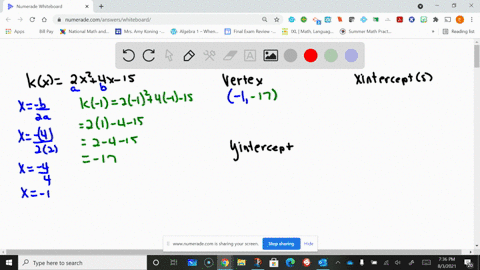 Numerade Whiteboard
numerade.com/answers/whiteboard/
Apps
Bill Pay
National Math and...
Mrs. Amy Koning -...
Algebra 1 - Whenev...
Final Exam Review -...
IXL | Math, Languag...
Summer Math Practi...
Reading list
k(x) = 2x²+4x-15
a b
Vertex
x intercept(s)
x = -b/2a
k(-1) = 2(-1)²+4(-1)-15
(-1, -17)
= 2(1)-4-15
x = -(4)/2(2)
= 2-4-15
y intercept
= -17
x = -4/4
x = -1
www.numerade.com is sharing your screen.
Stop sharing
Hide
Type here to search
7:36 PM
8/3/2021